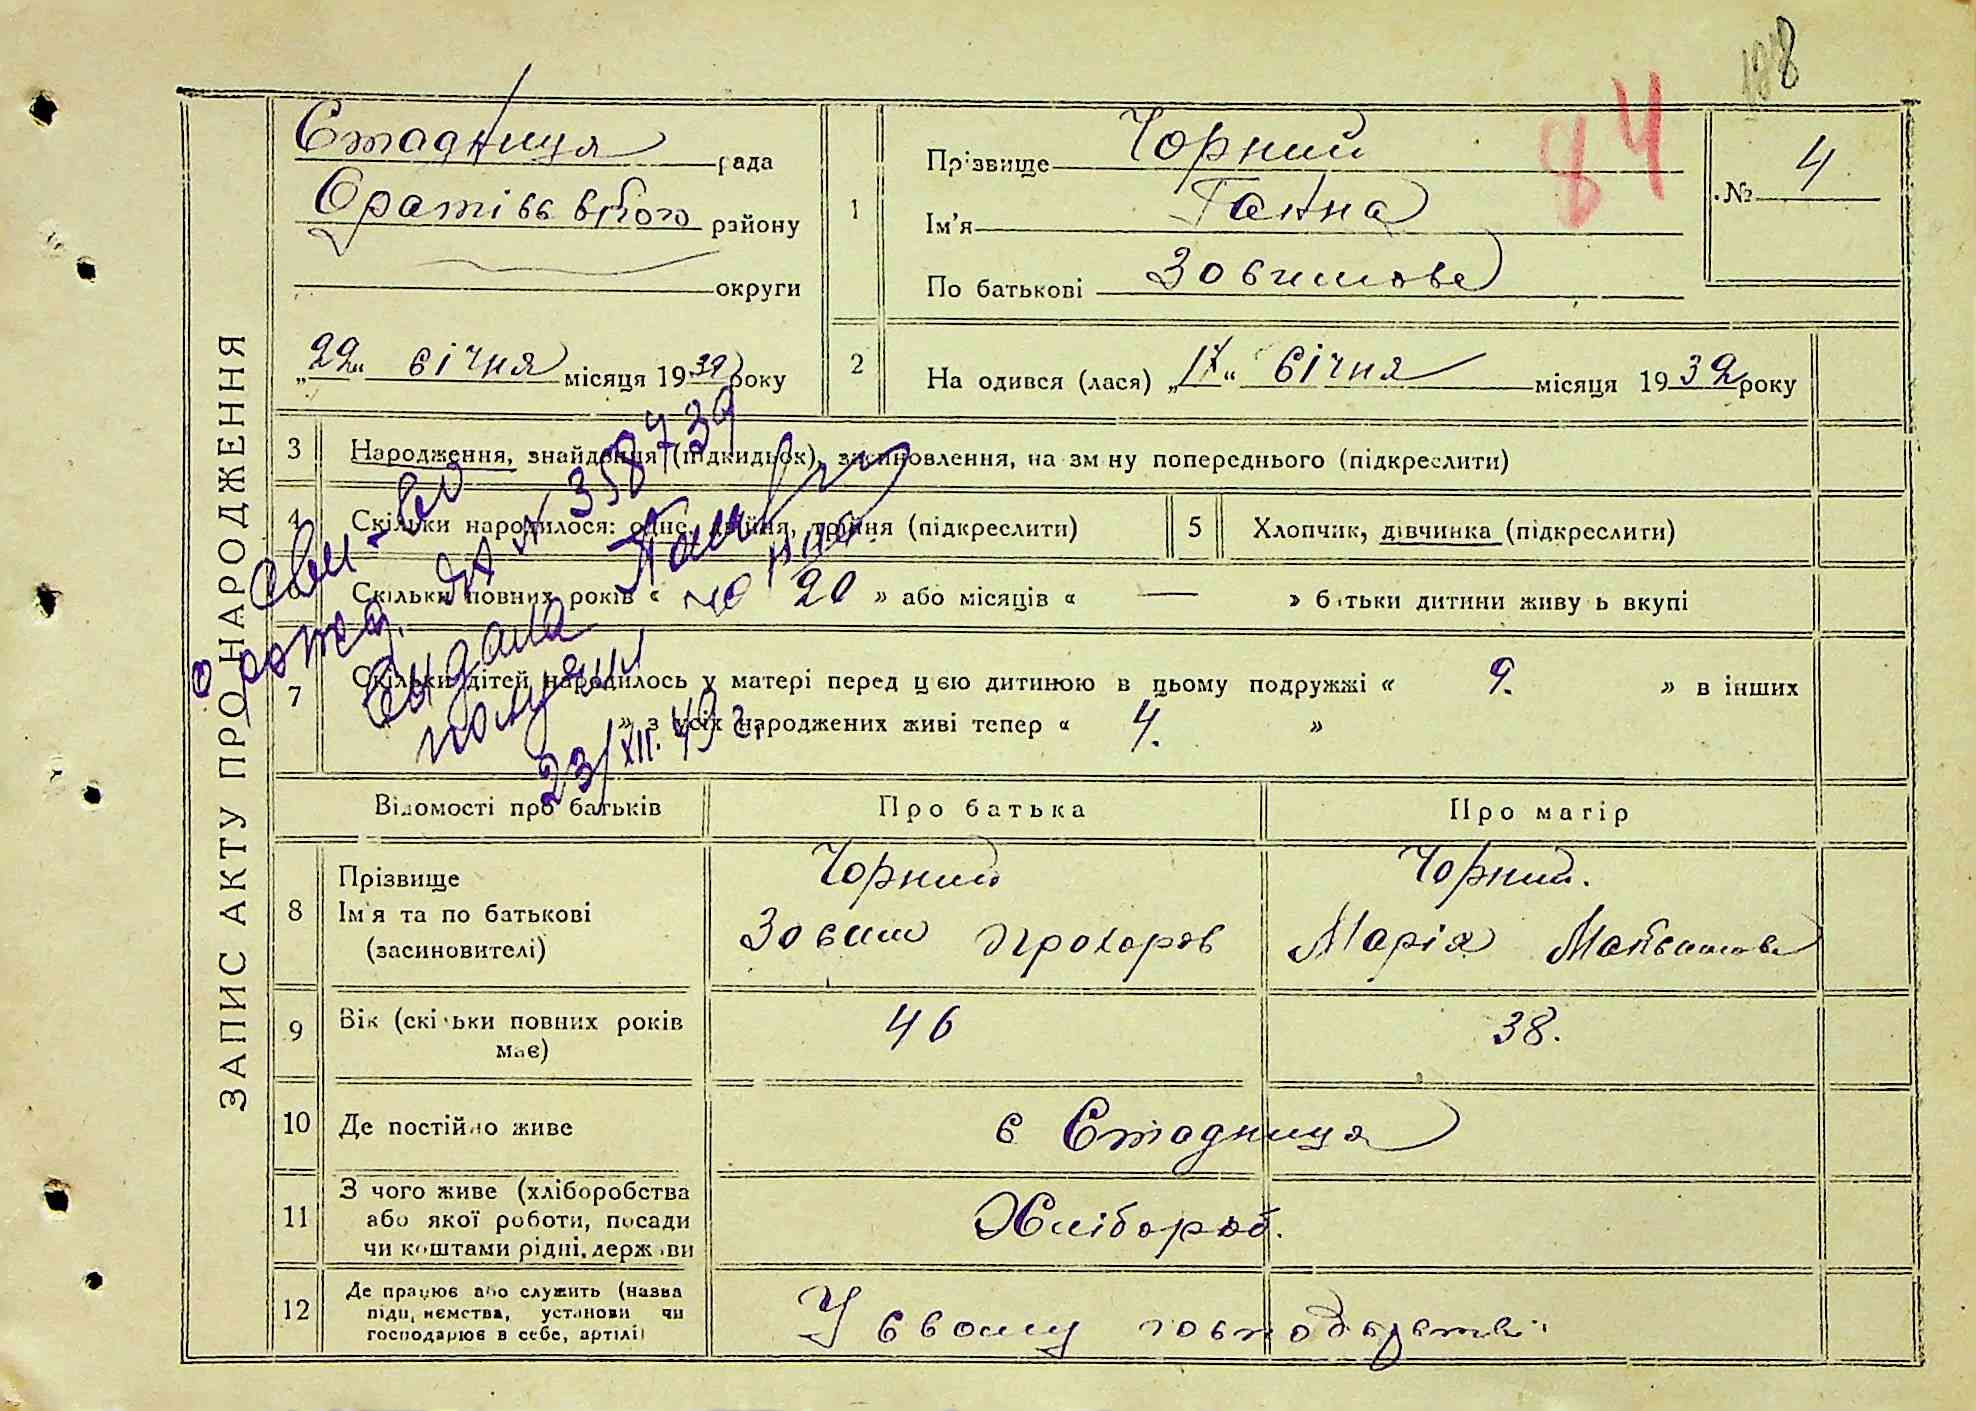 128
84
ЗАПИС АКТУ ПРО НАРОДЖЕННЯ
Стадниця рада
району
округи
„22“ січня місяця 1932 року
1
Прізвище Чорний
Ім'я Ганна
По батькові Зосимова
№ 4
2 На одився (лася) „ “ січня місяця 1932 року
3 Народження, знайдення (підкидьок), засиновлення, на зм ну попереднього (підкреслити)
4 Скільки народилося: одне, двійня, трійня (підкреслити)
5 Хлопчик, дівчинка (підкреслити)
6 Скільки повних років « 20 » або місяців « — » батьки дитини живу ь вкупі
7 Скільки дітей народилось у матері перед цією дитиною в цьому подружжі « 9. » в інших
» з усіх народжених живі тепер « 4. »
свид-во
о рожд. ЯА № 358739
выдала
получил
23/XII.49 г.
Відомості про батьків
Про батька
Про матір
8 Прізвище
Ім'я та по батькові
(засиновителі)
Чорний
Зосим Прохоров
Чорний.
Марія Максимова
9 Вік (скільки повних років
має)
46
38.
10 Де постійно живе
с Стадниця
11 З чого живе (хліборобства
або якої роботи, посади
чи коштами рідні, держ ви
Хлібороб.
12 Де працює або служить (назва
підприємства, установи чи
господарює в себе, артілі)
У свому господарстві